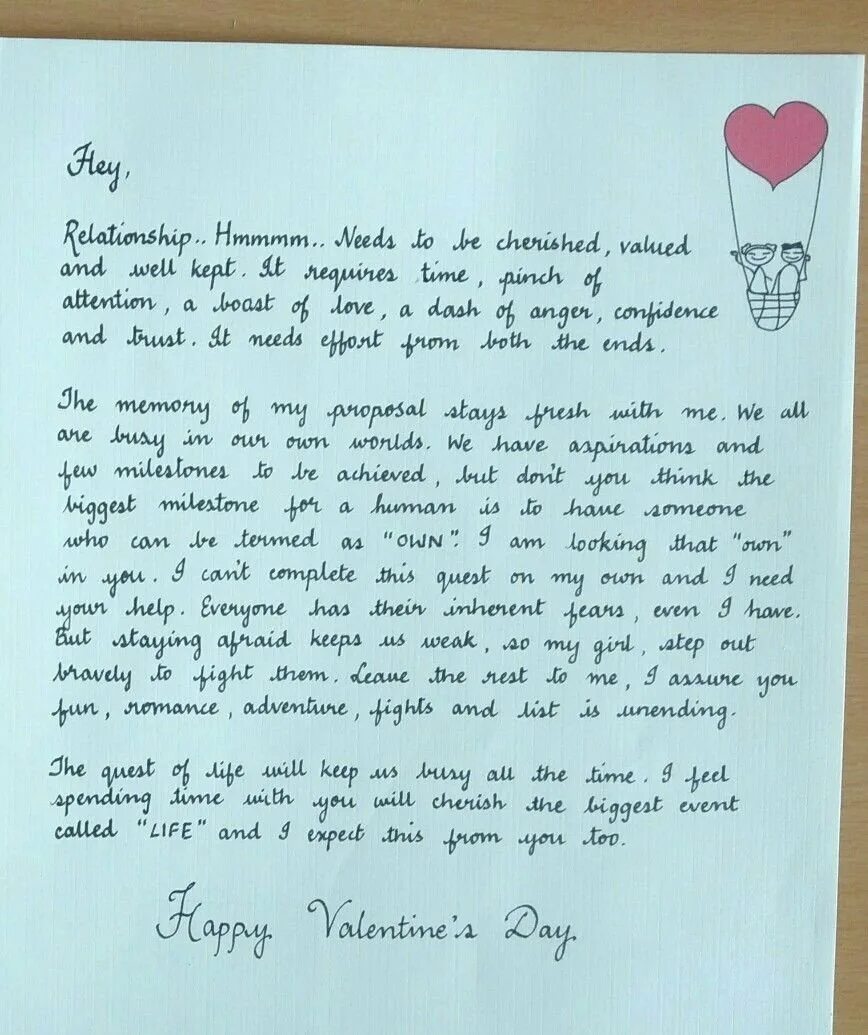 Hey,
Relationship.. Hmmmm.. Needs to be cherished, valued
and well kept. It requires time, pinch of
attention, a boast of love, a dash of anger, confidence
and trust. It needs effort from both the ends.
The memory of my proposal stays fresh with me. We all
are busy in our own worlds. We have aspirations and
few milestones to be achieved, but don't you think the
biggest milestone for a human is to have someone
who can be termed as "OWN". I am looking that "own"
in you. I can't complete this quest on my own and I need
your help. Everyone has their inherent fears, even I have.
But staying afraid keeps us weak, so my girl, step out
bravely to fight them. Leave the rest to me, I assure you
fun, romance, adventure, fights and list is unending.
The quest of life will keep us busy all the time. I feel
spending time with you will cherish the biggest event
called "LIFE" and I expect this from you too.
Happy Valentine's Day